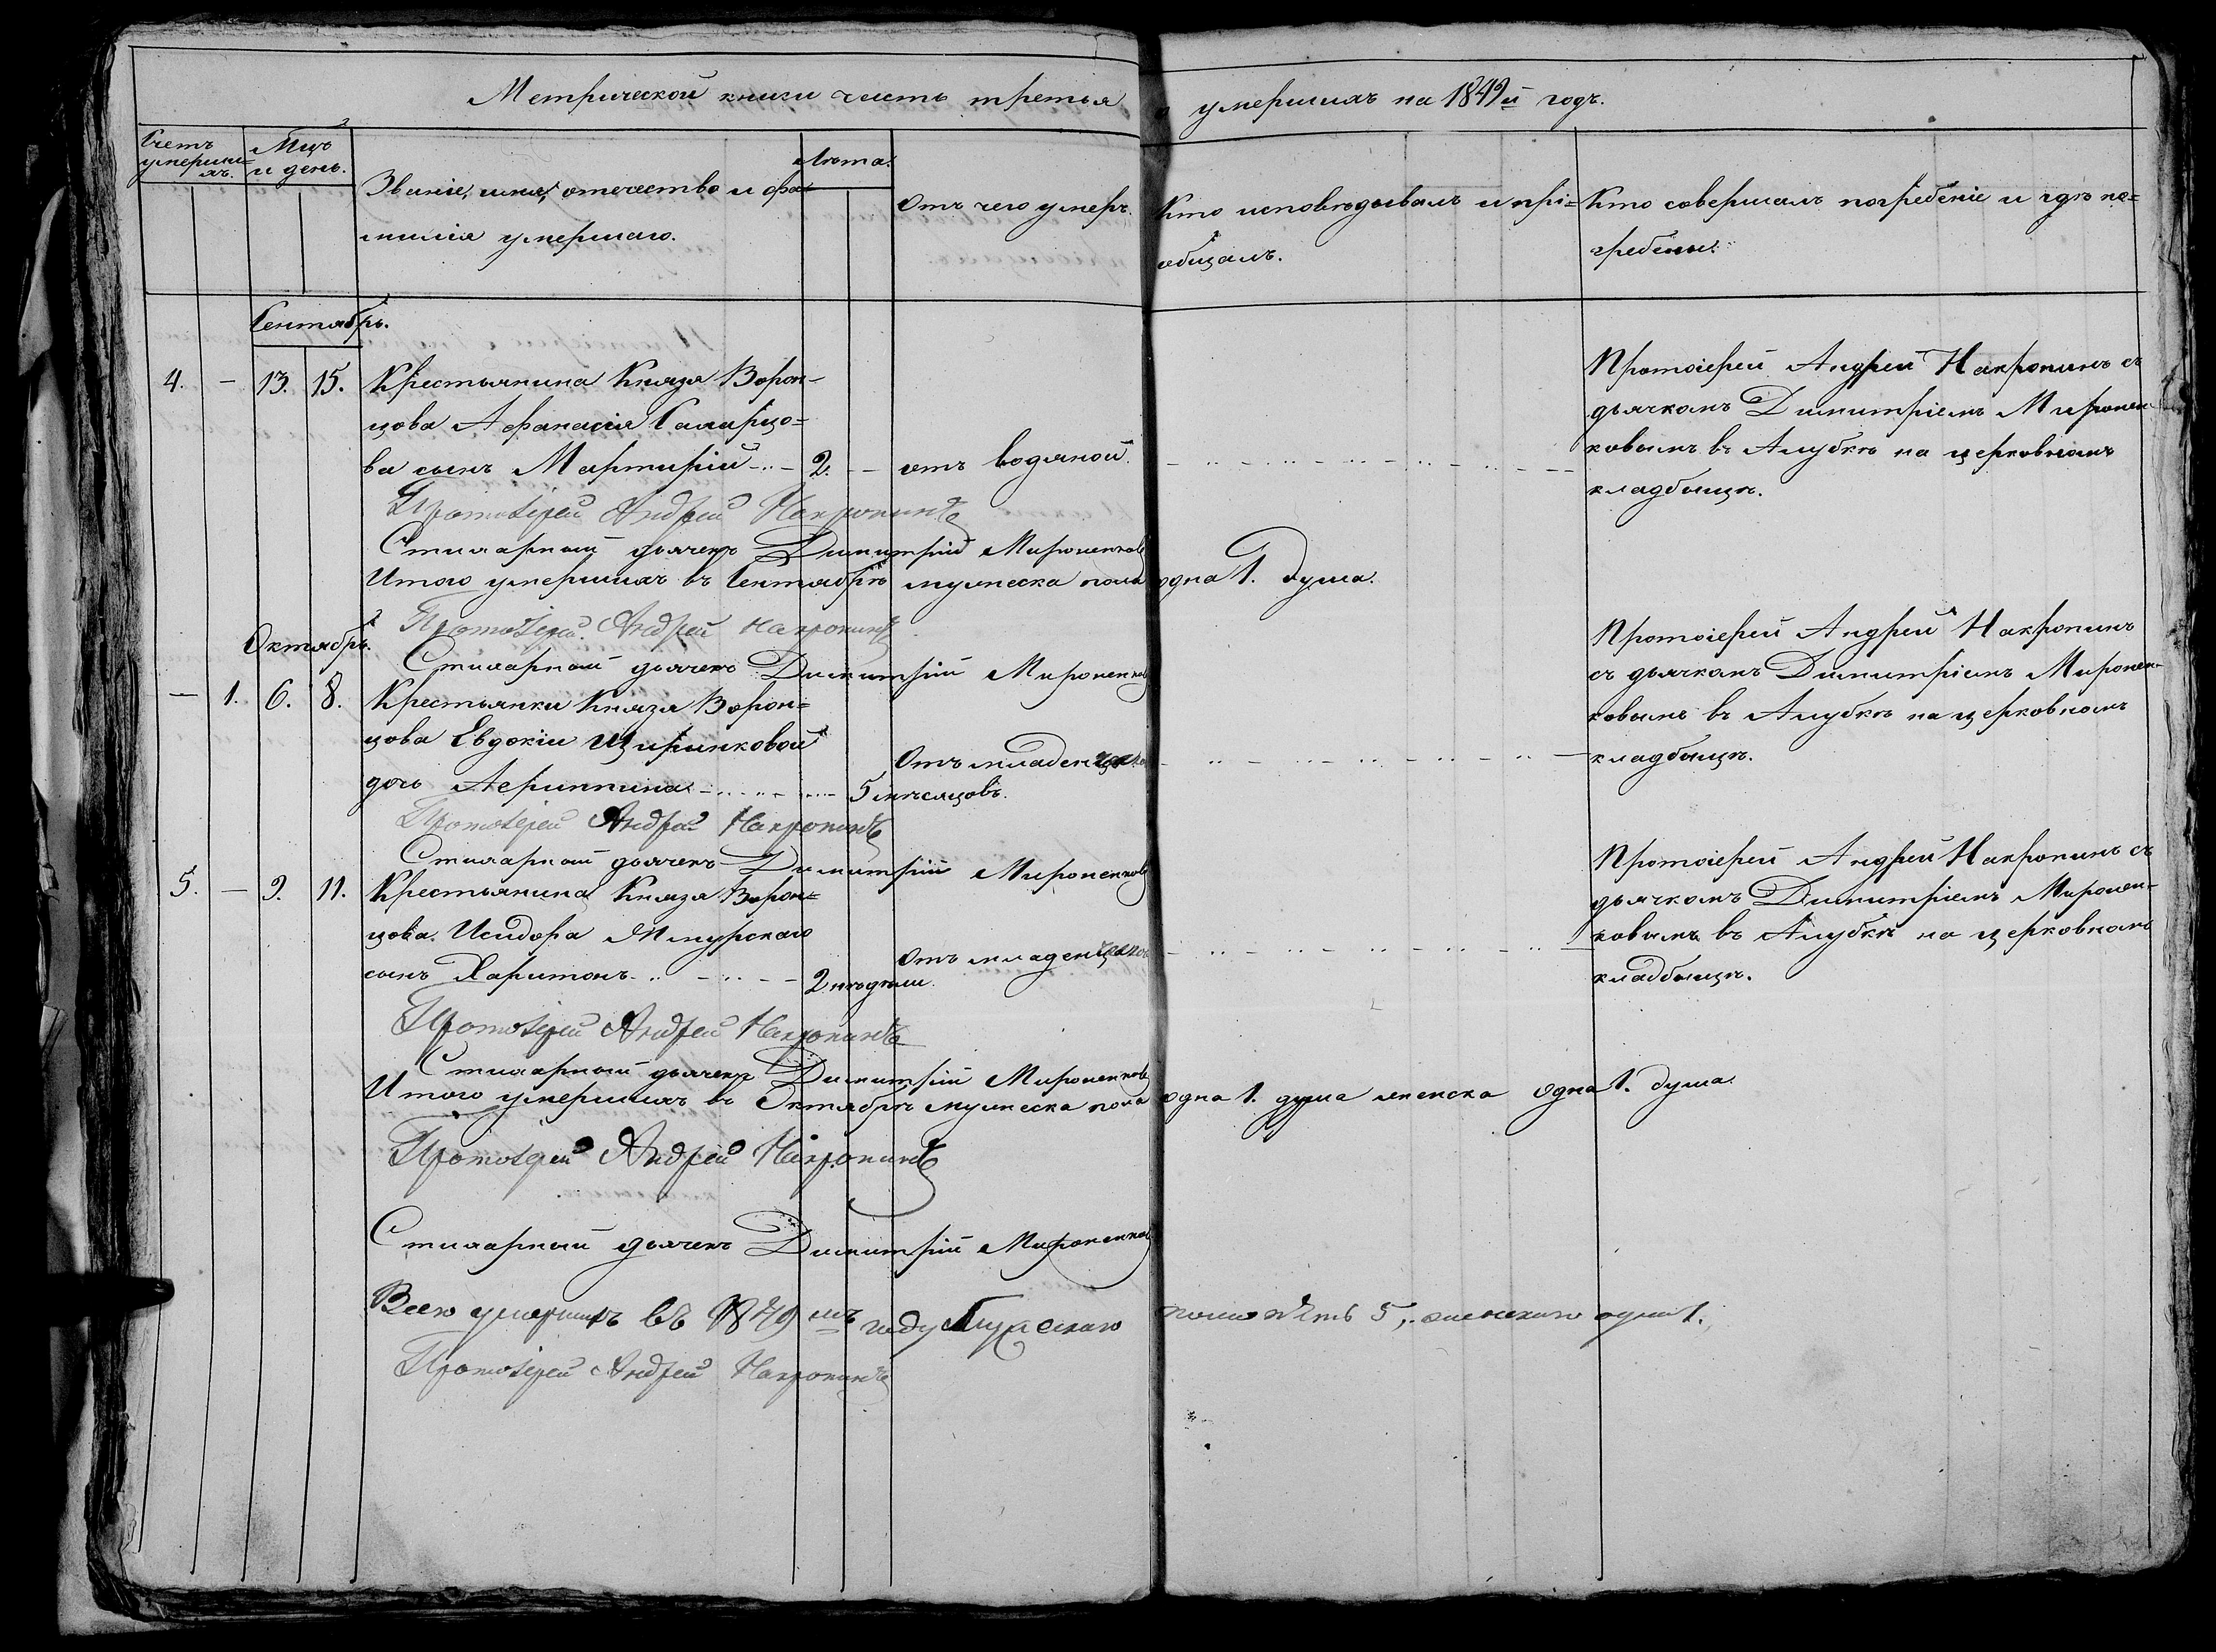 Метрической книги часть третья о умершихъ на 1849й годъ.
Счетъ умерши=хъ.
Мцъ и день.
Званіе, имя, отечество и фа=
милія умершаго.
Лѣта.
Отъ чего умеръ.
Кто исповѣдывалъ и прі=
общалъ.
Кто совершалъ погребеніе и гдѣ по=
гребены.
Сентябрь.
4. — 13. 15. Крестьянина Князя Ворон=
цова Афанасія
ва сынъ Мартирій 2. — отъ водяной.
Протоіерей Андрей Накропинъ съ
дьячкомъ Димитріемъ Миронен=
ковымъ въ Алубкѣ на церковномъ
кладбищѣ.
Протоіерей Андрей Накропинъ
Стихарный дьячекъ Димитрій Мироненковъ
Итого умершихъ въ Сентябрѣ мужеска пола одна 1. душа.
Протоіерей Андрей Накропинъ
Октябрь.
Стихарный дьячекъ Димитрій Мироненковъ
— 1. 6. 8. Крестьянки Князя Ворон=
цова Евдокіи Щиринковой
дочь Агрипина 5 мѣсяцовъ.
Отъ младенческой
Протоіерей Андрей Накропинъ
съ дьячкомъ Димитріемъ Миронен=
ковымъ въ Алубкѣ на церковномъ
кладбищѣ.
Протоіерей Андрей Накропинъ
Стихарный дьячекъ Димитрій Мироненковъ
5. — 9. 11. Крестьянина Князя Ворон=
цова Исидора
сынъ Харитонъ 2 недѣли.
Отъ младенческой
Протоіерей Андрей Накропинъ съ
дьячкомъ Димитріемъ Миронен=
ковымъ въ Алубкѣ на церковномъ
кладбищѣ.
Протоіерей Андрей Накропинъ
Стихарный дьячекъ Димитрій Мироненковъ
Итого умершихъ въ Октябрѣ мужеска пола одна 1. душа женска одна 1. душа.
Протоіерей Андрей Накропинъ
Стихарный дьячекъ Димитрій Мироненковъ
Всего умершихъ въ 1849мъ году Мужескаго пола пѣть 5, женскаго одна 1.
Протоіерей Андрей Накропинъ